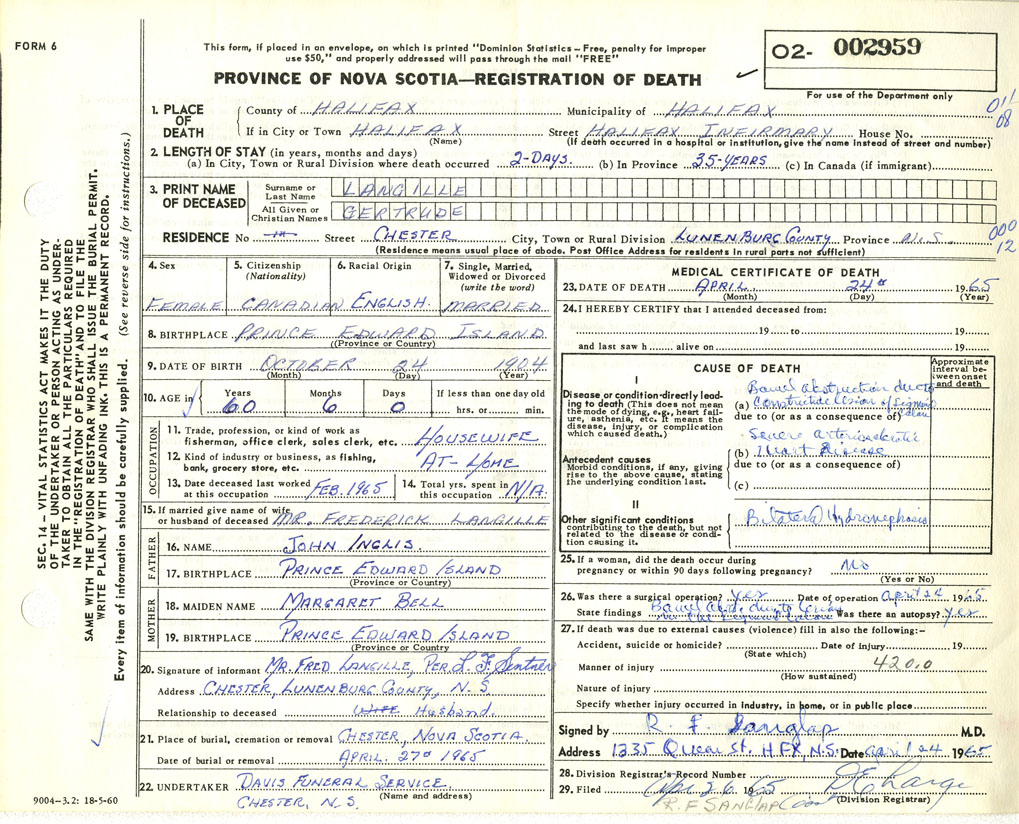 FORM 6
This form, if placed in an envelope, on which is printed "Dominion Statistics—Free, penalty for improper
use $50," and properly addressed will pass through the mail "FREE"
PROVINCE OF NOVA SCOTIA—REGISTRATION OF DEATH
O2- 002959
For use of the Department only
011
08
1. PLACE OF DEATH
County of HALIFAX Municipality of HALIFAX
If in City or Town HALIFAX Street HALIFAX INFIRMARY House No.
(Name) (If death occurred in a hospital or institution, give the name instead of street and number)
2. LENGTH OF STAY (in years, months and days)
(a) In City, Town or Rural Division where death occurred 2-DAYS. (b) In Province 35-YEARS (c) In Canada (if immigrant)
3. PRINT NAME OF DECEASED
Surname or Last Name LANGILLE
All Given or Christian Names GERTRUDE
RESIDENCE No Street CHESTER City, Town or Rural Division LUNENBURG COUNTY Province N.S.
(Residence means usual place of abode. Post Office Address for residents in rural parts not sufficient)
000
12
4. Sex FEMALE
5. Citizenship (Nationality) CANADIAN
6. Racial Origin ENGLISH.
7. Single, Married, Widowed or Divorced (write the word) MARRIED
8. BIRTHPLACE PRINCE EDWARD ISLAND
(Province or Country)
9. DATE OF BIRTH OCTOBER 24 1904
(Month) (Day) (Year)
10. AGE in Years 60 Months 6 Days 0 If less than one day old hrs. or min.
OCCUPATION
11. Trade, profession, or kind of work as
fisherman, office clerk, sales clerk, etc. HOUSEWIFE
12. Kind of industry or business, as fishing,
bank, grocery store, etc. AT-HOME
13. Date deceased last worked
at this occupation FEB. 1965
14. Total yrs. spent in
this occupation N/A.
15. If married give name of wife
or husband of deceased MR. FREDERICK LANGILLE
FATHER
16. NAME JOHN INGLIS.
17. BIRTHPLACE PRINCE EDWARD ISLAND
(Province or Country)
MOTHER
18. MAIDEN NAME MARGARET BELL
19. BIRTHPLACE PRINCE EDWARD ISLAND
(Province or Country)
20. Signature of informant MR. FRED LANGILLE, PER.
Address CHESTER, LUNENBURG COUNTY, N.S
Relationship to deceased WIFE Husband.
21. Place of burial, cremation or removal CHESTER, NOVA SCOTIA.
Date of burial or removal APRIL. 27th 1965
22. UNDERTAKER DAVIS FUNERAL SERVICE.
(Name and address)
CHESTER, N.S.
9004-3.2: 18-5-60
MEDICAL CERTIFICATE OF DEATH
23. DATE OF DEATH APRIL. 24th 1965
(Month) (Day) (Year)
24. I HEREBY CERTIFY that I attended deceased from:
19 to 19
and last saw h alive on 19
CAUSE OF DEATH
Approximate interval between onset and death
I
Disease or condition directly leading to death (This does not mean
the mode of dying, e.g., heart failure, asthenia, etc. It means the
disease, injury, or complication
which caused death.)
Bowel obstruction due to
(a) Constrictive lesion of sigmoid
due to (or as a consequence of) colon
Antecedent causes
Morbid conditions, if any, giving
rise to the above cause, stating
the underlying condition last.
Severe arteriosclerotic
(b) Heart Disease
due to (or as a consequence of)
(c)
II
Other significant conditions
contributing to the death, but not
related to the disease or condition causing it.
Bilateral Hydronephosis
25. If a woman, did the death occur during
pregnancy or within 90 days following pregnancy? No
(Yes or No)
26. Was there a surgical operation? yes Date of operation april 24 1965
State findings Was there an autopsy? yes
27. If death was due to external causes (violence) fill in also the following:-
Accident, suicide or homicide? Date of injury 19
(State which)
Manner of injury 420.0
(How sustained)
Nature of injury
Specify whether injury occurred in industry, in home, or in public place
Signed by R. F. Sanglap M.D.
Address 1335 Queen St. HFX, N.S. Date april 24 1965
28. Division Registrar's Record Number
29. Filed Apr 26 1965
(Division Registrar)
R. F SANGLAP
SEC. 14 — VITAL STATISTICS ACT MAKES IT THE DUTY
OF THE UNDERTAKER OR PERSON ACTING AS UNDER-
TAKER TO OBTAIN ALL THE PARTICULARS REQUIRED
IN THE "REGISTRATION OF DEATH" AND TO FILE THE
SAME WITH THE DIVISION REGISTRAR WHO SHALL ISSUE THE BURIAL PERMIT.
WRITE PLAINLY WITH UNFADING INK. THIS IS A PERMANENT RECORD.
Every item of information should be carefully supplied. (See reverse side for instructions.)